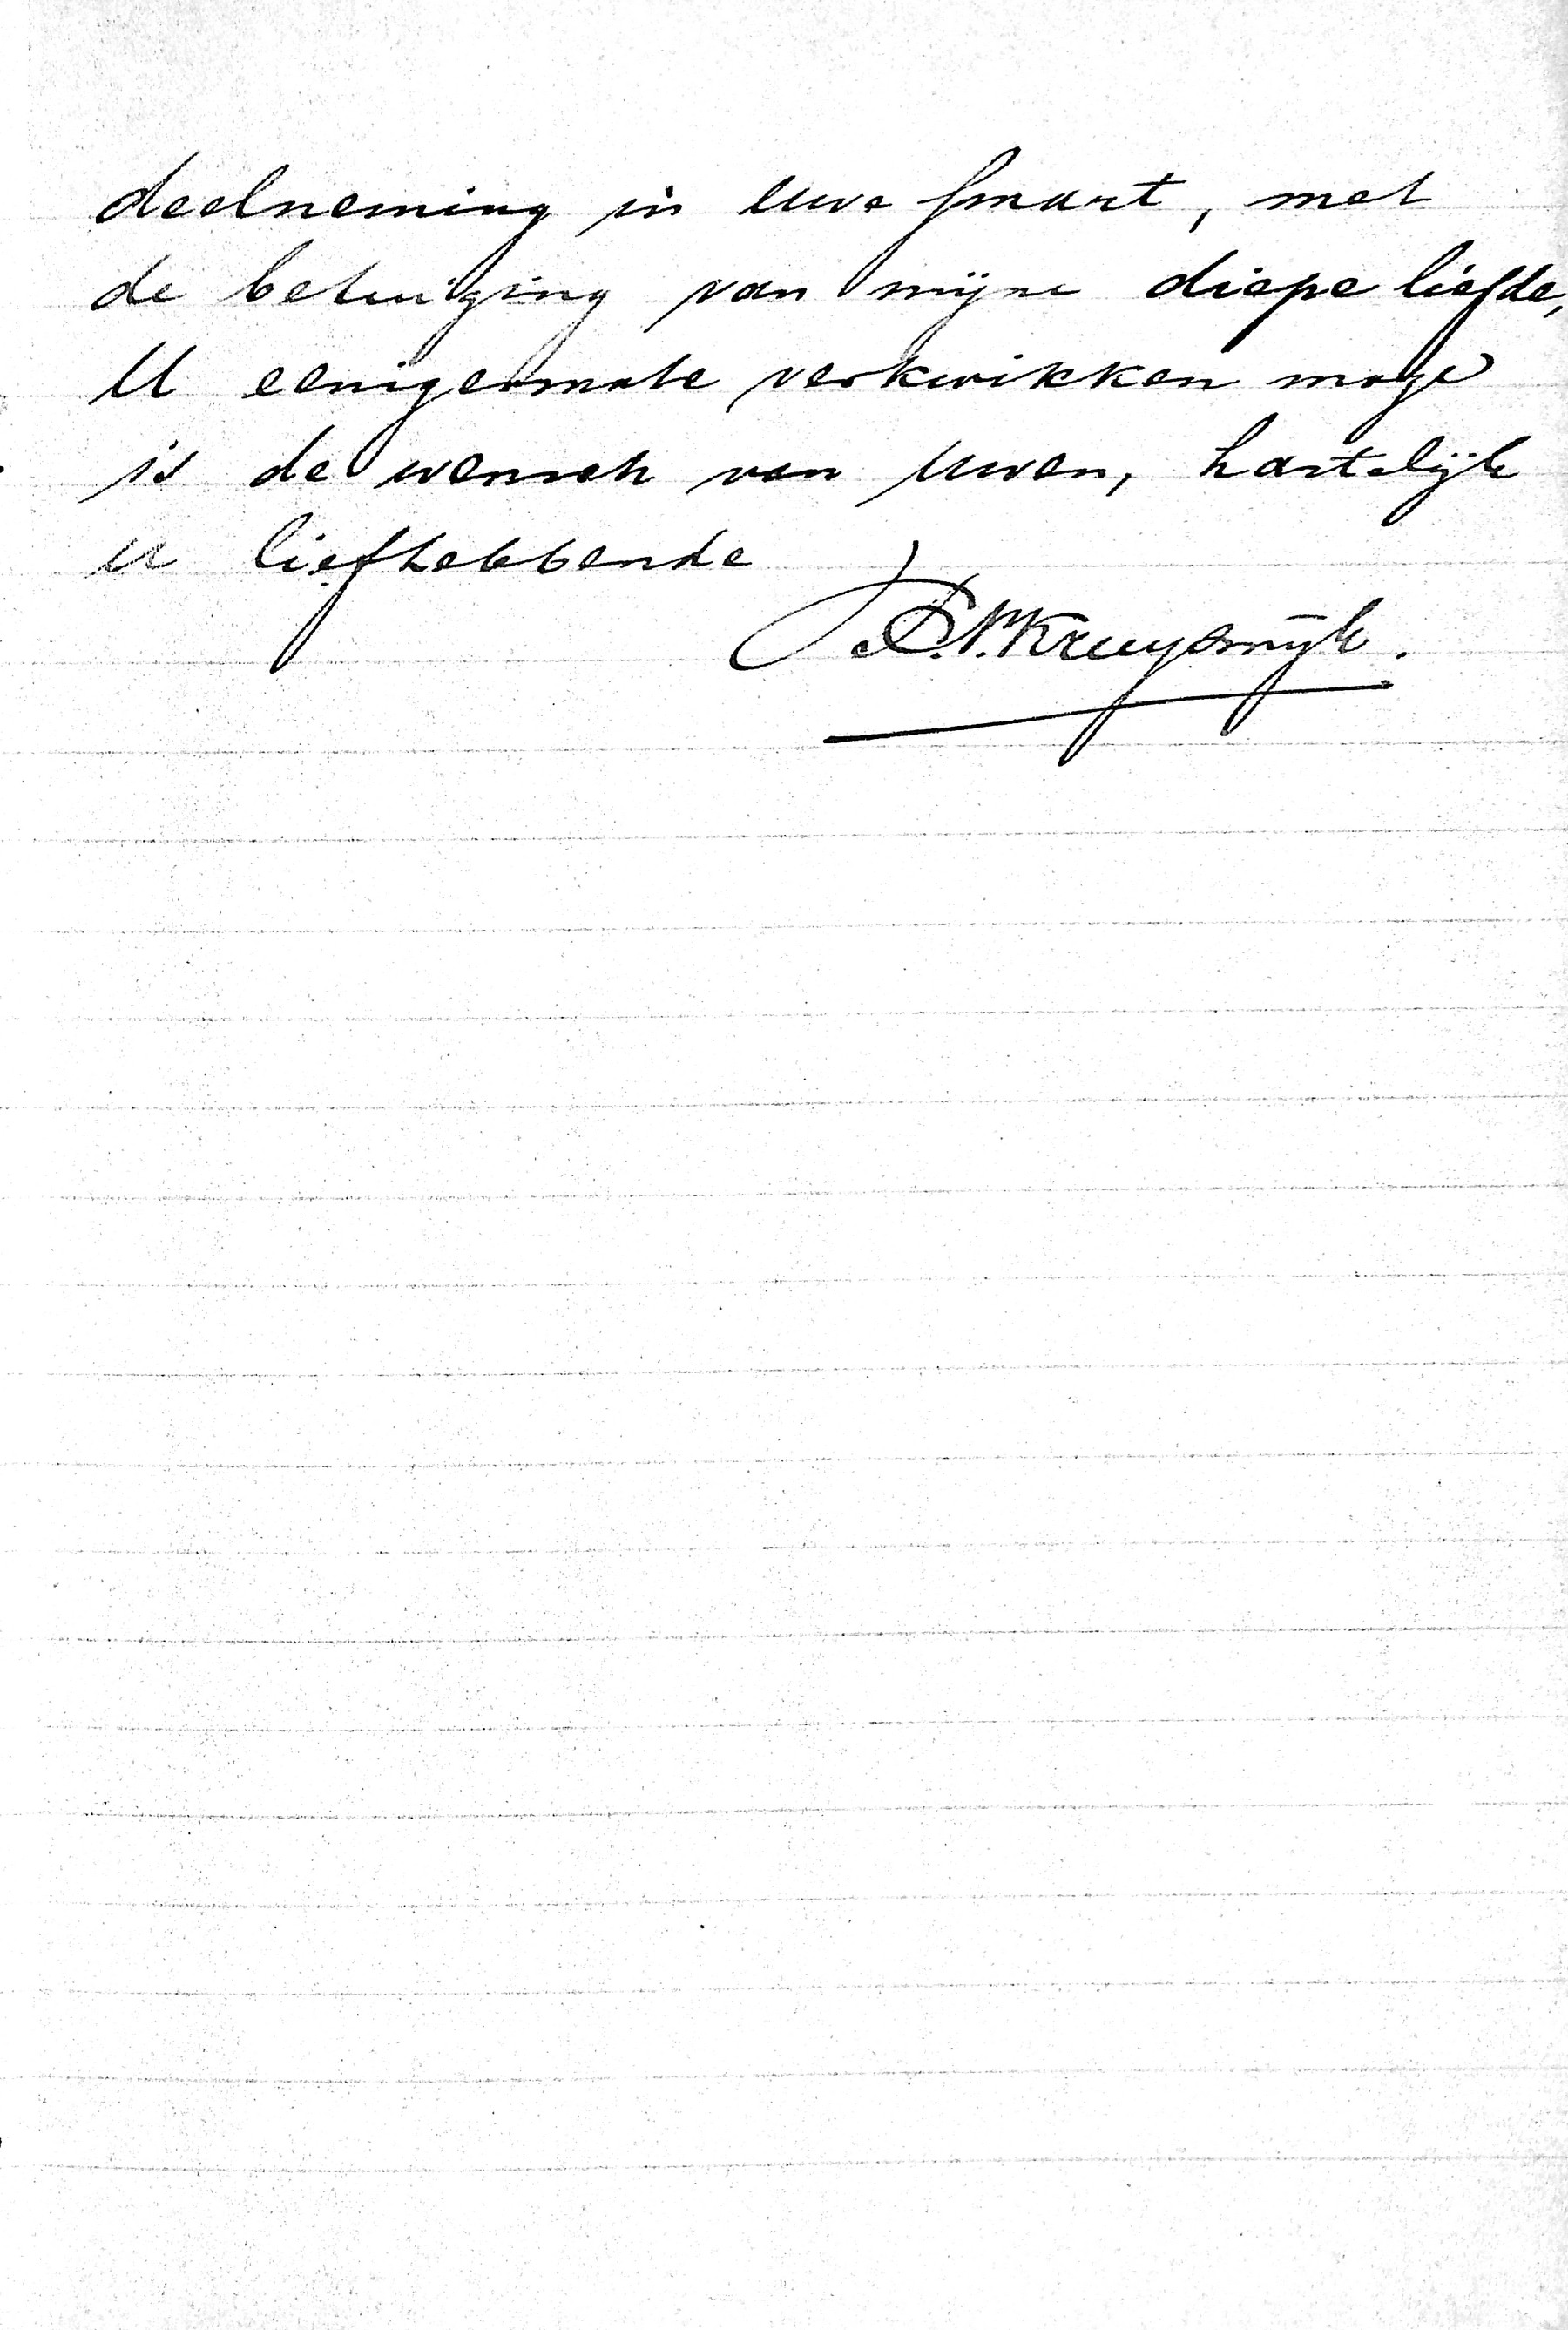 deelneming in Uwe smart, met
de betuiging van mijne diepe liefde,
U eenigermate verkwikken moge
is de wensch van Uwen, hartelijk
U liefhebbende
P. Kruyswijk.